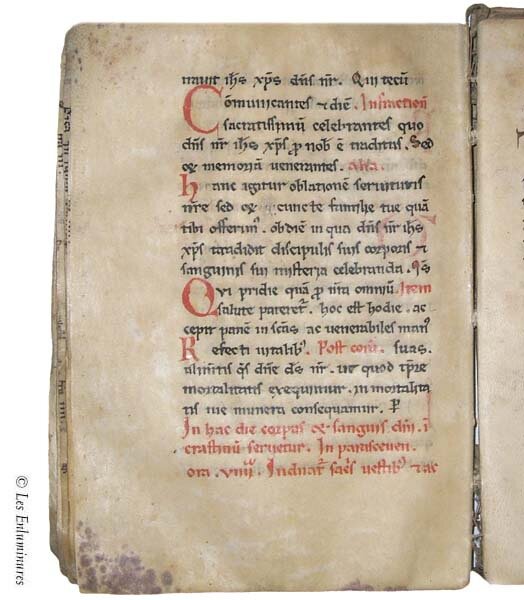 trauit ihs xps dns nr. Qui tecu
Comunicantes & die. Infraction
sacratissimu celebrantes quo
dns nr ihs xps p nob e traditus. Sed
& memoria uenerantes. Alia.
hanc agitur oblatione seruitutis
nre sed & cuncte familie tue qua
tibi offerim. ob die in qua dns nr ihs
xps tradidit discipulis suis corporis &
sanguinis sui misteria celebranda. Qs
Qui pridie qua p nra omniu. Item
salute pateret. hoc est hodie. ac
cepit pane in scas ac uenerabiles man
Refecti uitalib. Post com. suas.
alimtis qs dne ds nr. ut quod tpre
mortalitatis exequimur. in mortalita
tis tue munera consequamur. P
In hac die corpus & sanguis dni. i
crastinu seruetur. In parasceuen.
ora. viiii. Induat saces uestib & ac
© Les Enluminures